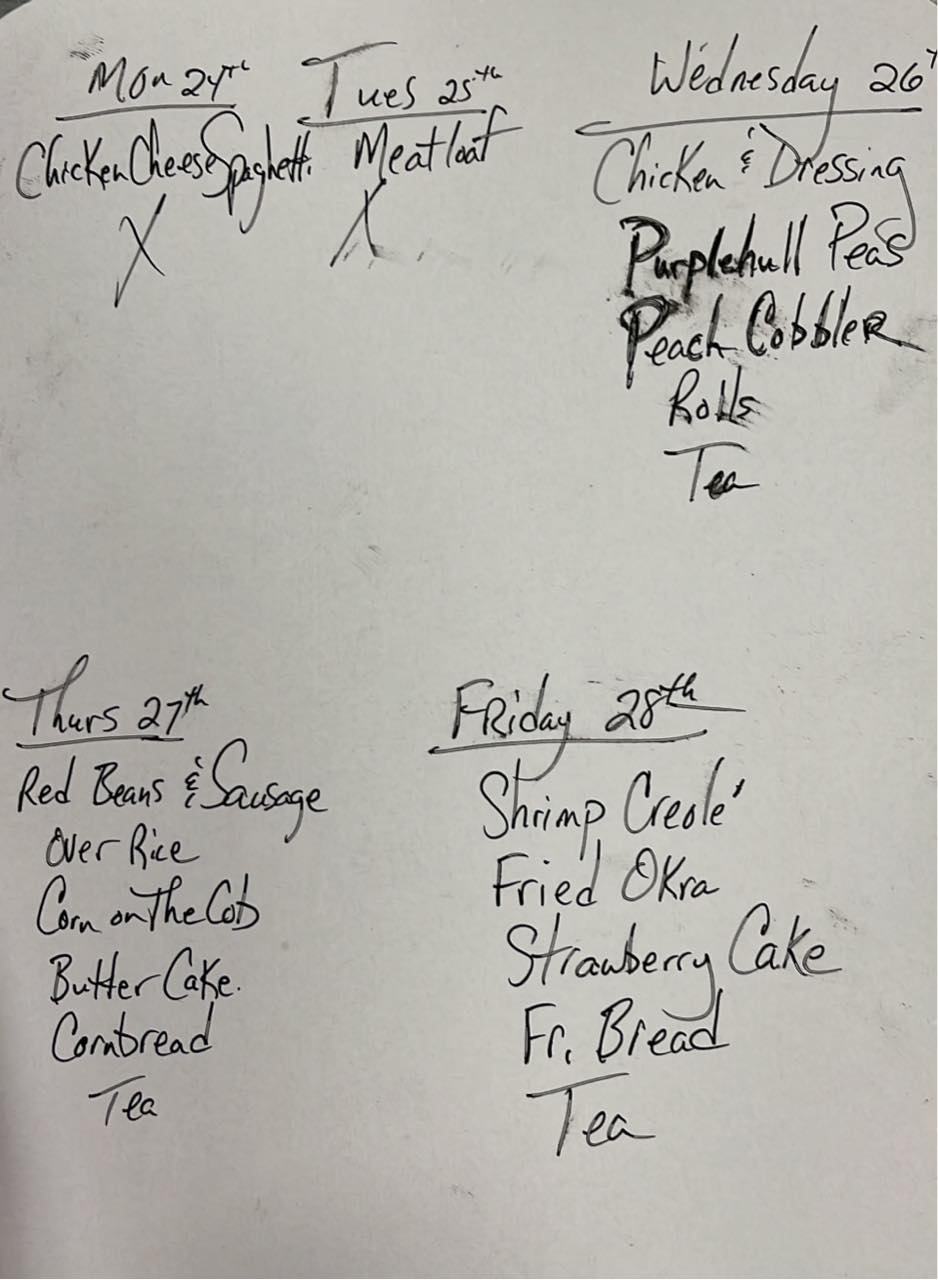 Mon 24th
Chicken Cheese Spaghetti
X
Tues 25th
Meatloaf
X
Wednesday 26t
Chicken & Dressing
Purplehull Peas
Peach Cobbler
Rolls
Tea
Thurs 27th
Red Beans & Sausage
Over Rice
Corn on The Cob
Butter Cake.
Cornbread
Tea
Friday 28th
Shrimp Creole'
Fried Okra
Strawberry Cake
Fr. Bread
Tea